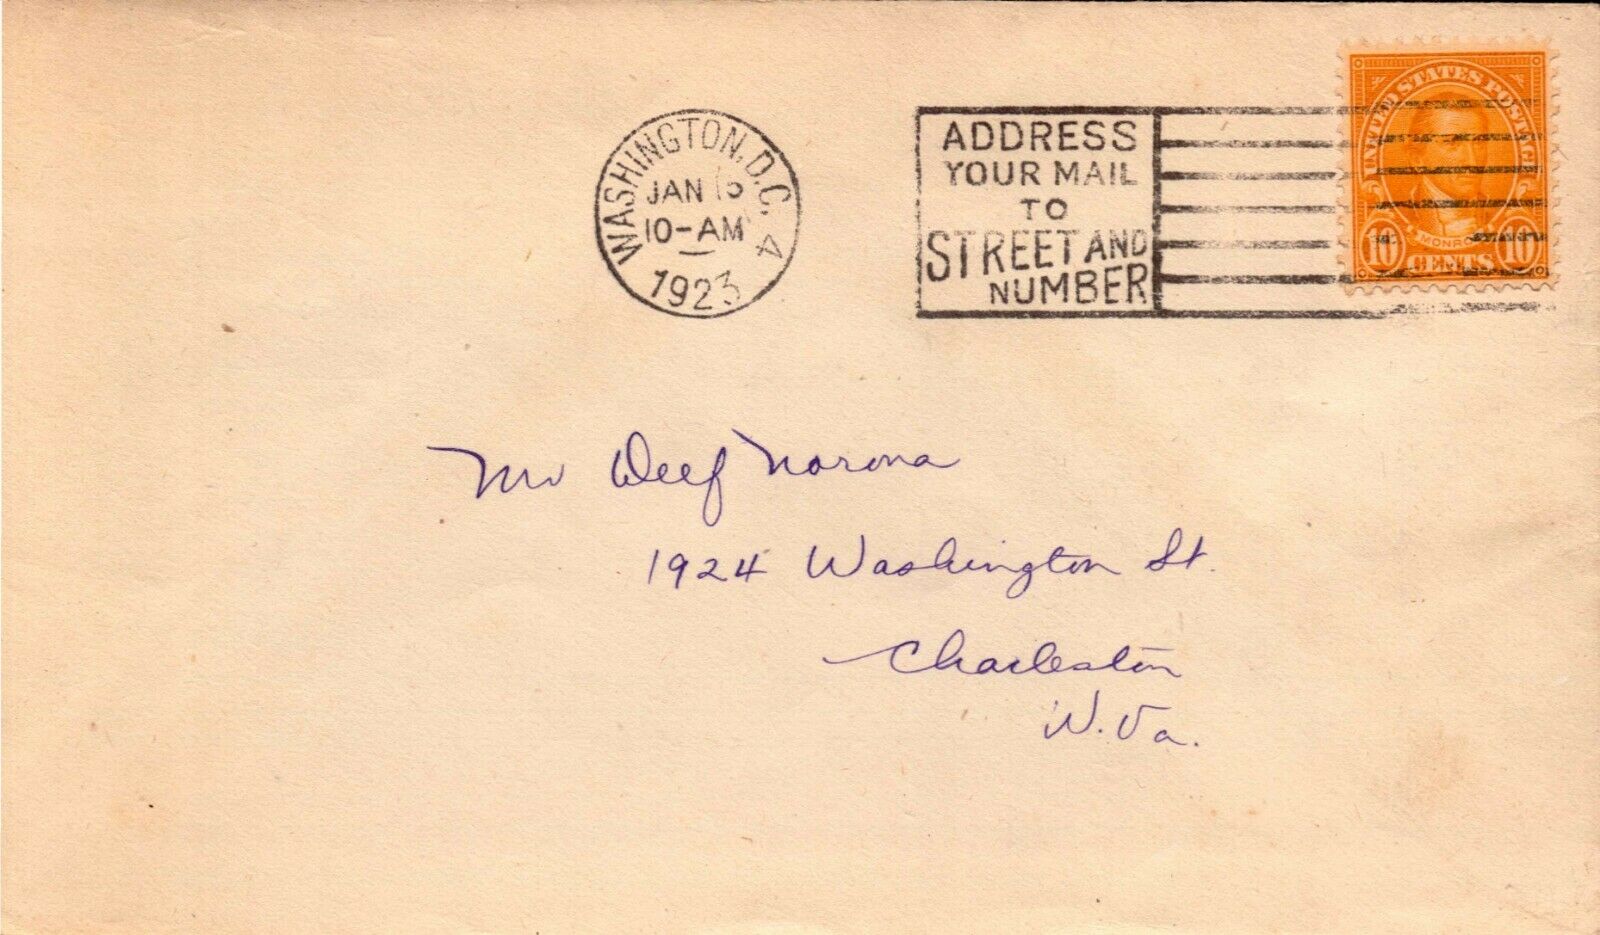 WASHINGTON, D.C. 4
JAN 15
10-AM
1923
ADDRESS
YOUR MAIL
TO
STREET AND
NUMBER
UNITED STATES POSTAGE
MONROE
10 CENTS 10
Mr Delf Norona
1924 Washington St.
Charleston
W.Va.